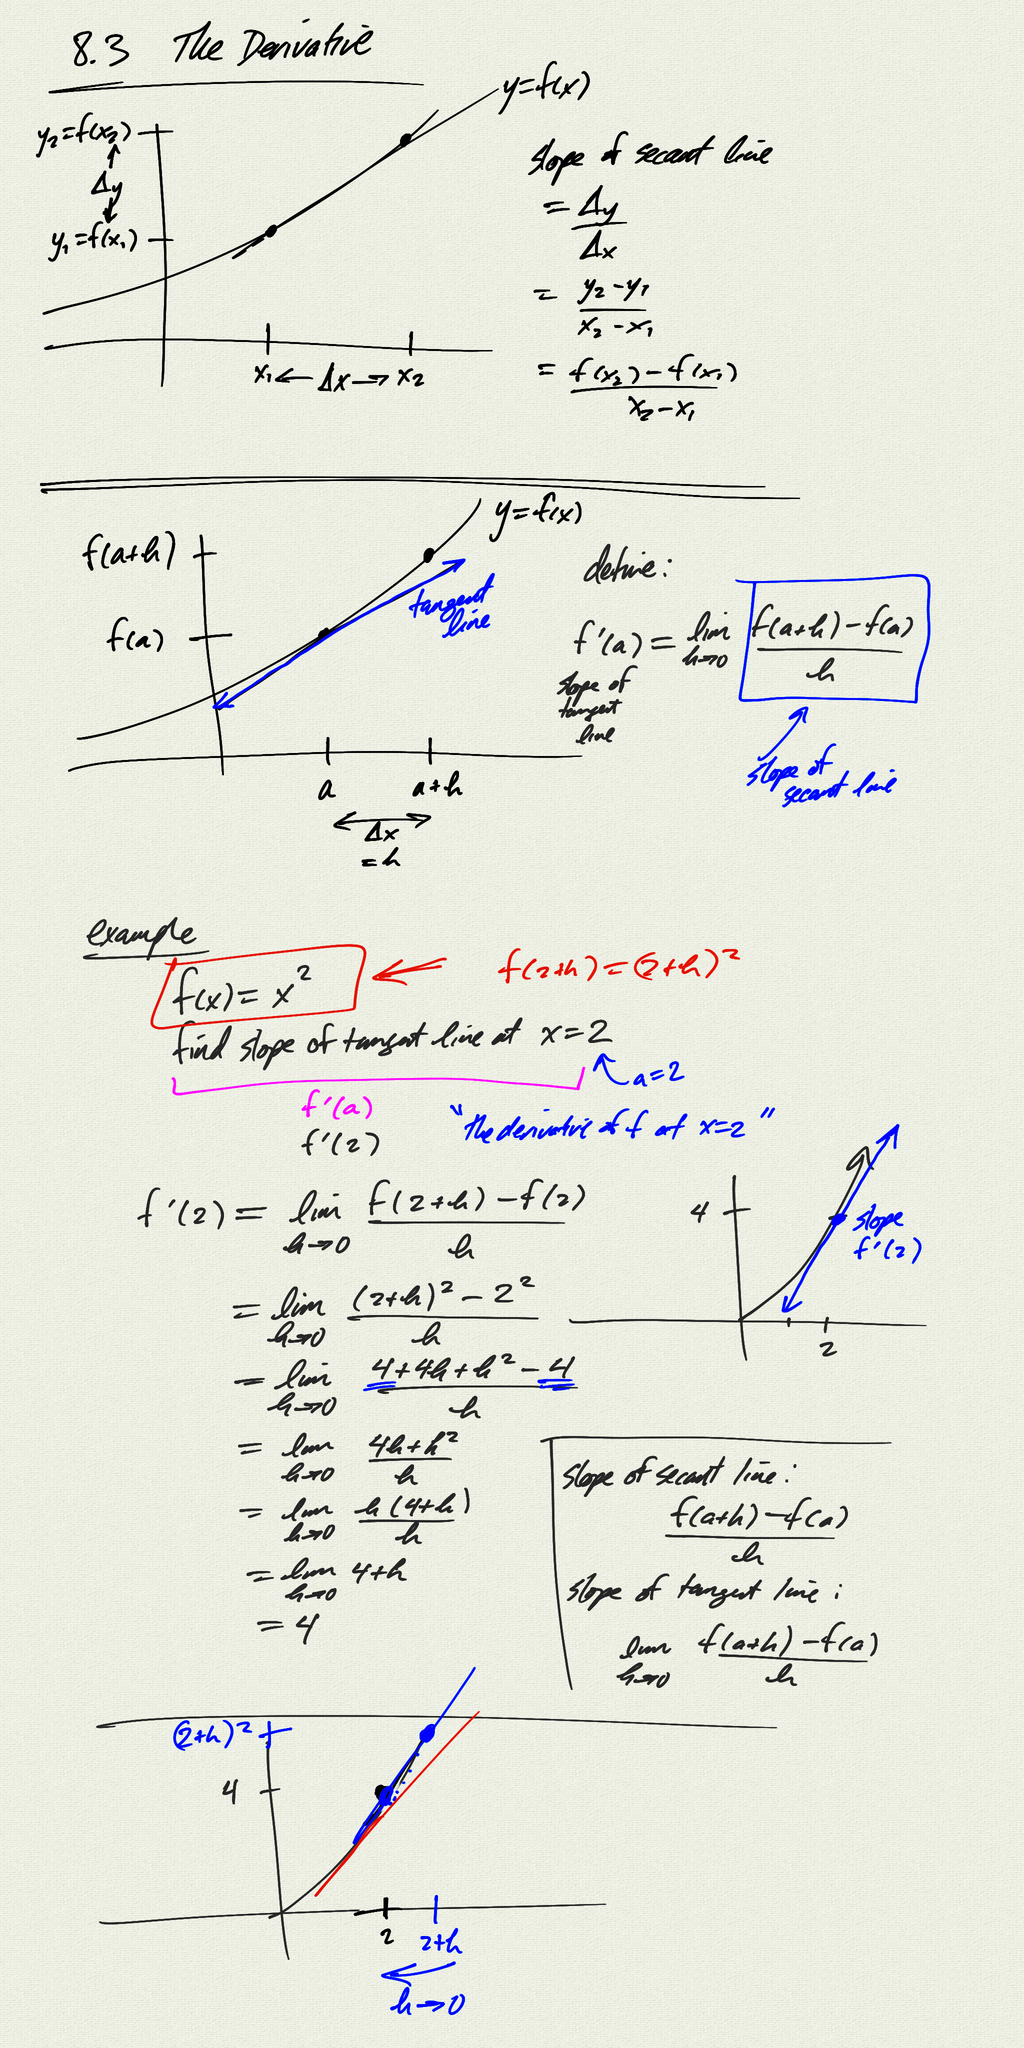 8.3 The Derivative
y=f(x)
y₂=f(x₂)
Δy
y₁=f(x₁)
x₁ ← Δx → x₂
slope of secant line
= Δy/Δx
= (y₂-y₁)/(x₂-x₁)
= (f(x₂)-f(x₁))/(x₂-x₁)
y=f(x)
f(a+h)
f(a)
tangent
line
a
a+h
Δx
=h
define:
f'(a) = lim h→0 (f(a+h)-f(a))/h
slope of
tangent
line
slope of
secant line
example
f(x)= x²
f(2+h)=(2+h)²
find slope of tangent line at x=2
a=2
f'(a)
f'(2)
"the derivative of f at x=2"
f'(2) = lim h→0 (f(2+h)-f(2))/h
= lim h→0 ((2+h)²-2²)/h
= lim h→0 (4+4h+h²-4)/h
= lim h→0 (4h+h²)/h
= lim h→0 h(4+h)/h
= lim h→0 4+h
= 4
4
slope
f'(2)
2
slope of secant line:
(f(a+h)-f(a))/h
slope of tangent line:
lim h→0 (f(a+h)-f(a))/h
(2+h)²
4
2
2+h
h→0